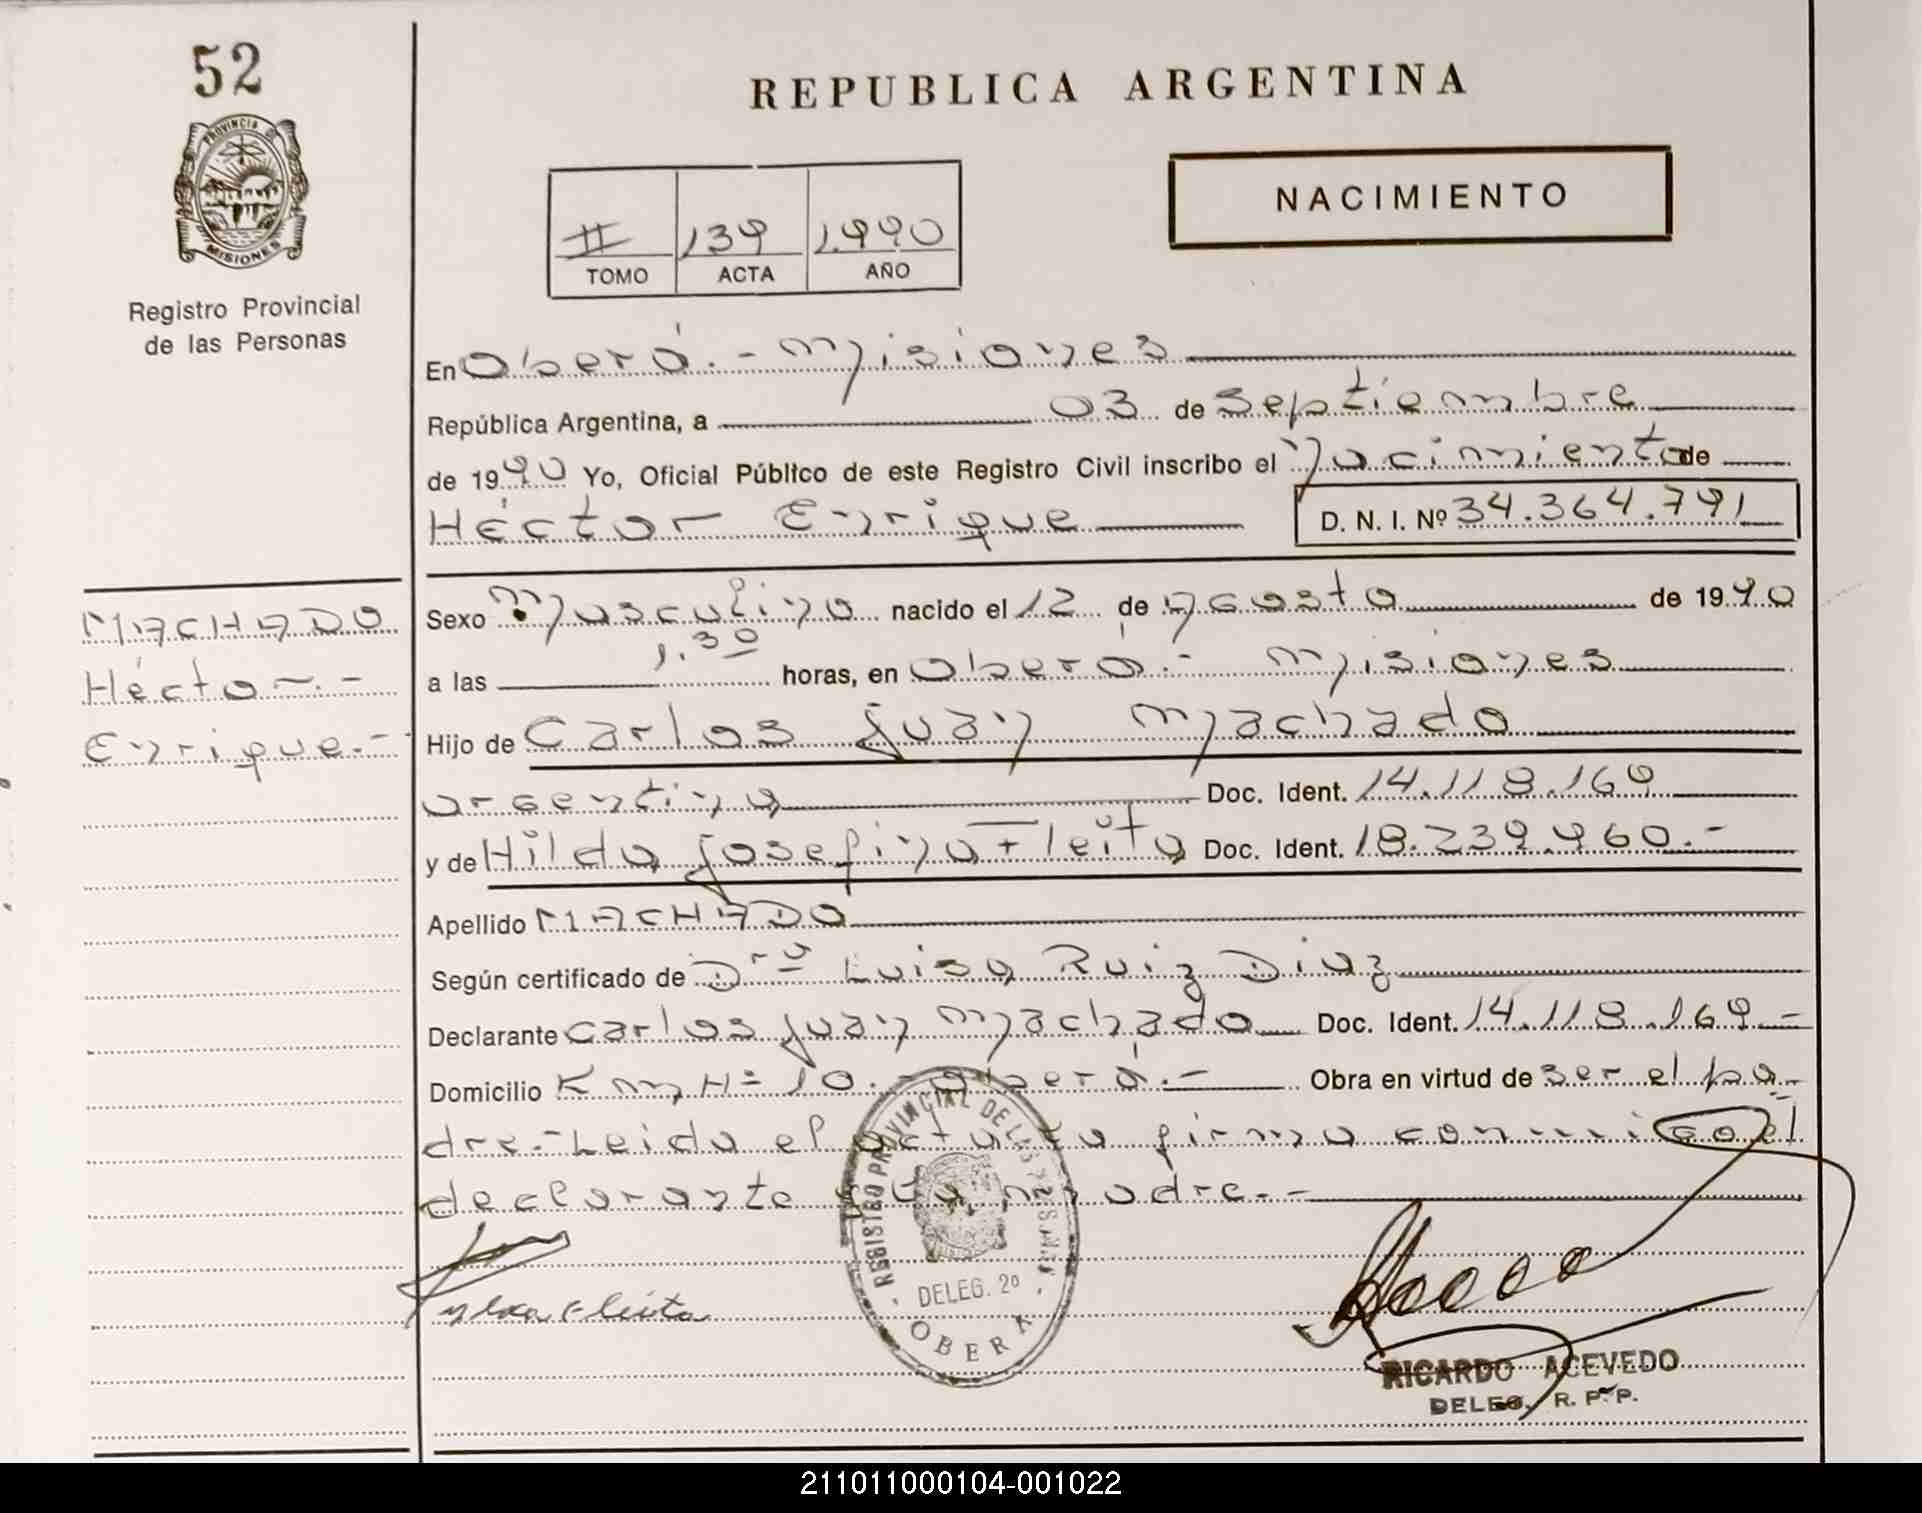 52
PROVINCIA DE
MISIONES
Registro Provincial
de las Personas
REPUBLICA ARGENTINA
NACIMIENTO
II 139 1.990
TOMO ACTA AÑO
En Oberá.- Misiones
República Argentina, a 03 de Septiembre
de 1990 Yo, Oficial Público de este Registro Civil inscribo el Nacimiento de
Héctor Enrique D. N. I. Nº 34.364.791
MACHADO
Héctor.-
Enrique.-
Sexo Masculino nacido el 12 de Agosto de 1990
a las 1.30 horas, en Oberá.- Misiones
Hijo de Carlos Juan Machado
argentino Doc. Ident. 14.118.169
y de Hilda Josefina Fleita Doc. Ident. 18.239.960.-
Apellido MACHADO
Según certificado de Drª Luisa Ruiz Diaz
Declarante Carlos Juan Machado Doc. Ident. 14.118.169.-
Domicilio Km Nº 10.- Oberá.- Obra en virtud de ser el pa-
dre.- Leida el acta la firma conmigo el
declarante y la madre.-
Fleita
REGISTRO PROVINCIAL DE LAS PERSONAS
DELEG. 2º
OBERA
RICARDO ACEVEDO
DELEG. R. P. P.
211011000104-001022